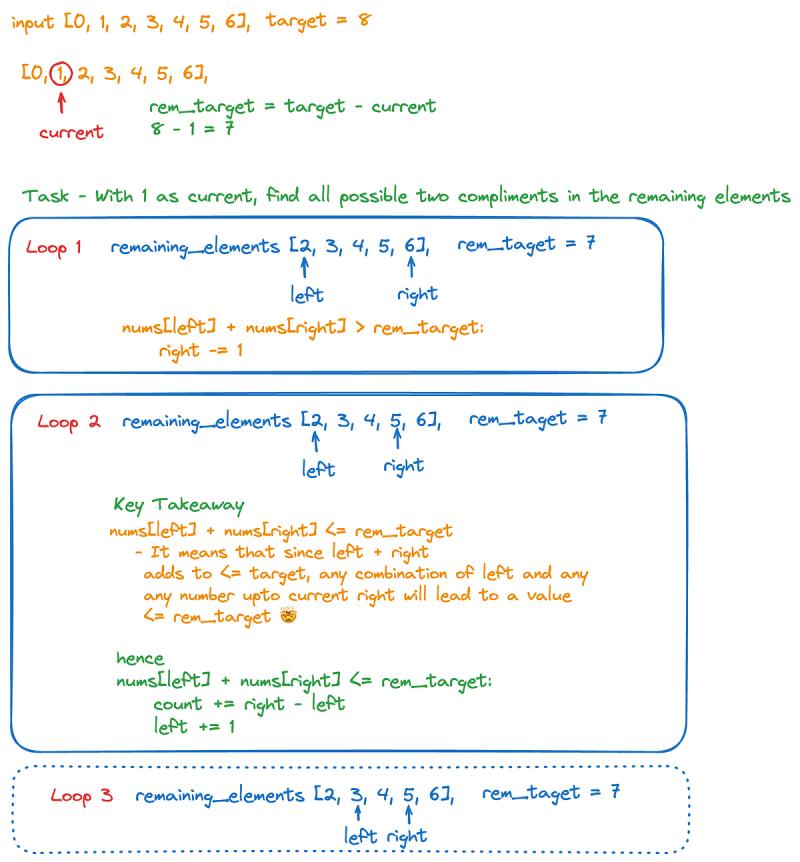 input [0, 1, 2, 3, 4, 5, 6], target = 8
[0, 1, 2, 3, 4, 5, 6],
current
rem_target = target - current
8 - 1 = 7
Task - With 1 as current, find all possible two compliments in the remaining elements
Loop 1 remaining_elements [2, 3, 4, 5, 6], rem_taget = 7
left right
nums[left] + nums[right] > rem_target:
right -= 1
Loop 2 remaining_elements [2, 3, 4, 5, 6], rem_taget = 7
left right
Key Takeaway
nums[left] + nums[right] <= rem_target
- It means that since left + right
adds to <= target, any combination of left and any
any number upto current right will lead to a value
<= rem_target 🤯
hence
nums[left] + nums[right] <= rem_target:
count += right - left
left += 1
Loop 3 remaining_elements [2, 3, 4, 5, 6], rem_taget = 7
left right